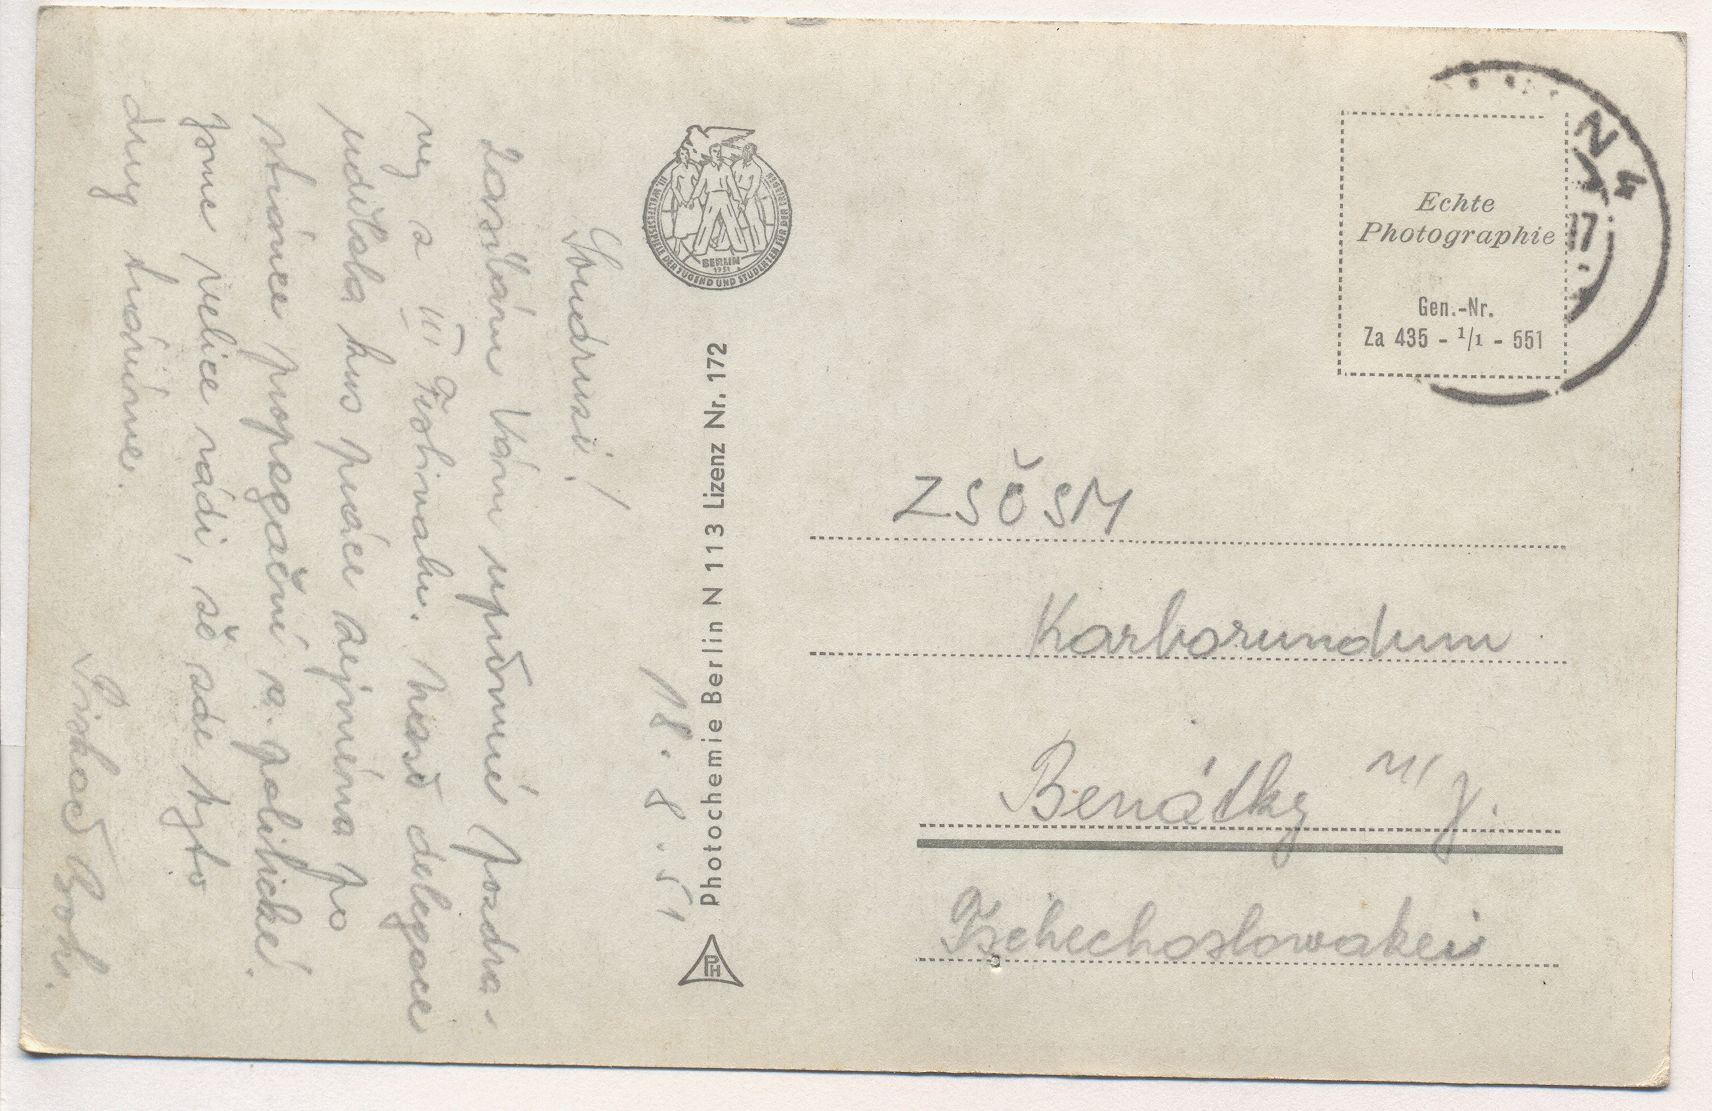 18. 8. 51
Soudruzi!
Zasílám Vám upřímné pozdra-
vy z III Festivalu. Naše delegace
udělala kus práce zejména po
stránce propagační a politické.
Jsme velice rádi, že zde tyto
dny trávíme.
III. WELTFESTSPIELE DER JUGEND UND STUDENTEN FÜR DEN FRIEDEN
BERLIN
1951
Photochemie Berlin N 113 Lizenz Nr. 172
PH
N 4
17
Echte
Photographie
Gen.-Nr.
Za 435 - 1/1 - 551
ZSČSM
Karborundum
Benátky n/J.
Tschechoslowakei